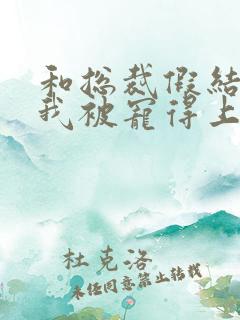 和总裁假结
我被宠得上
杜克洛
未经同意禁止转载